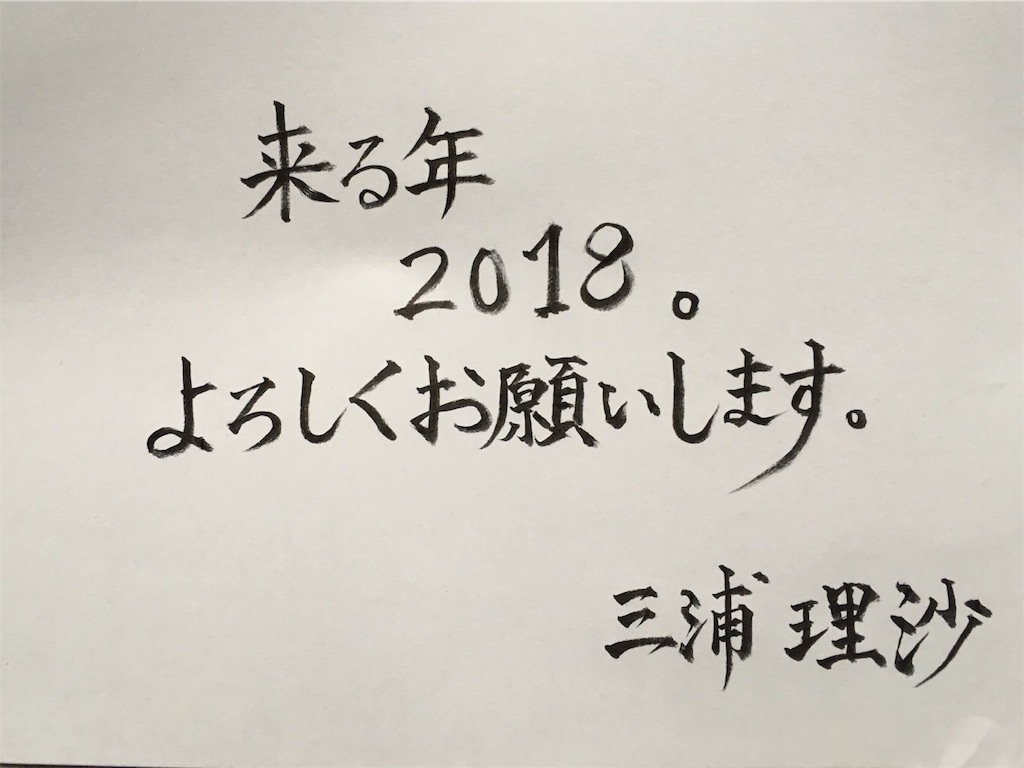 来る年
2018。
よろしくお願いします。
三浦 理沙